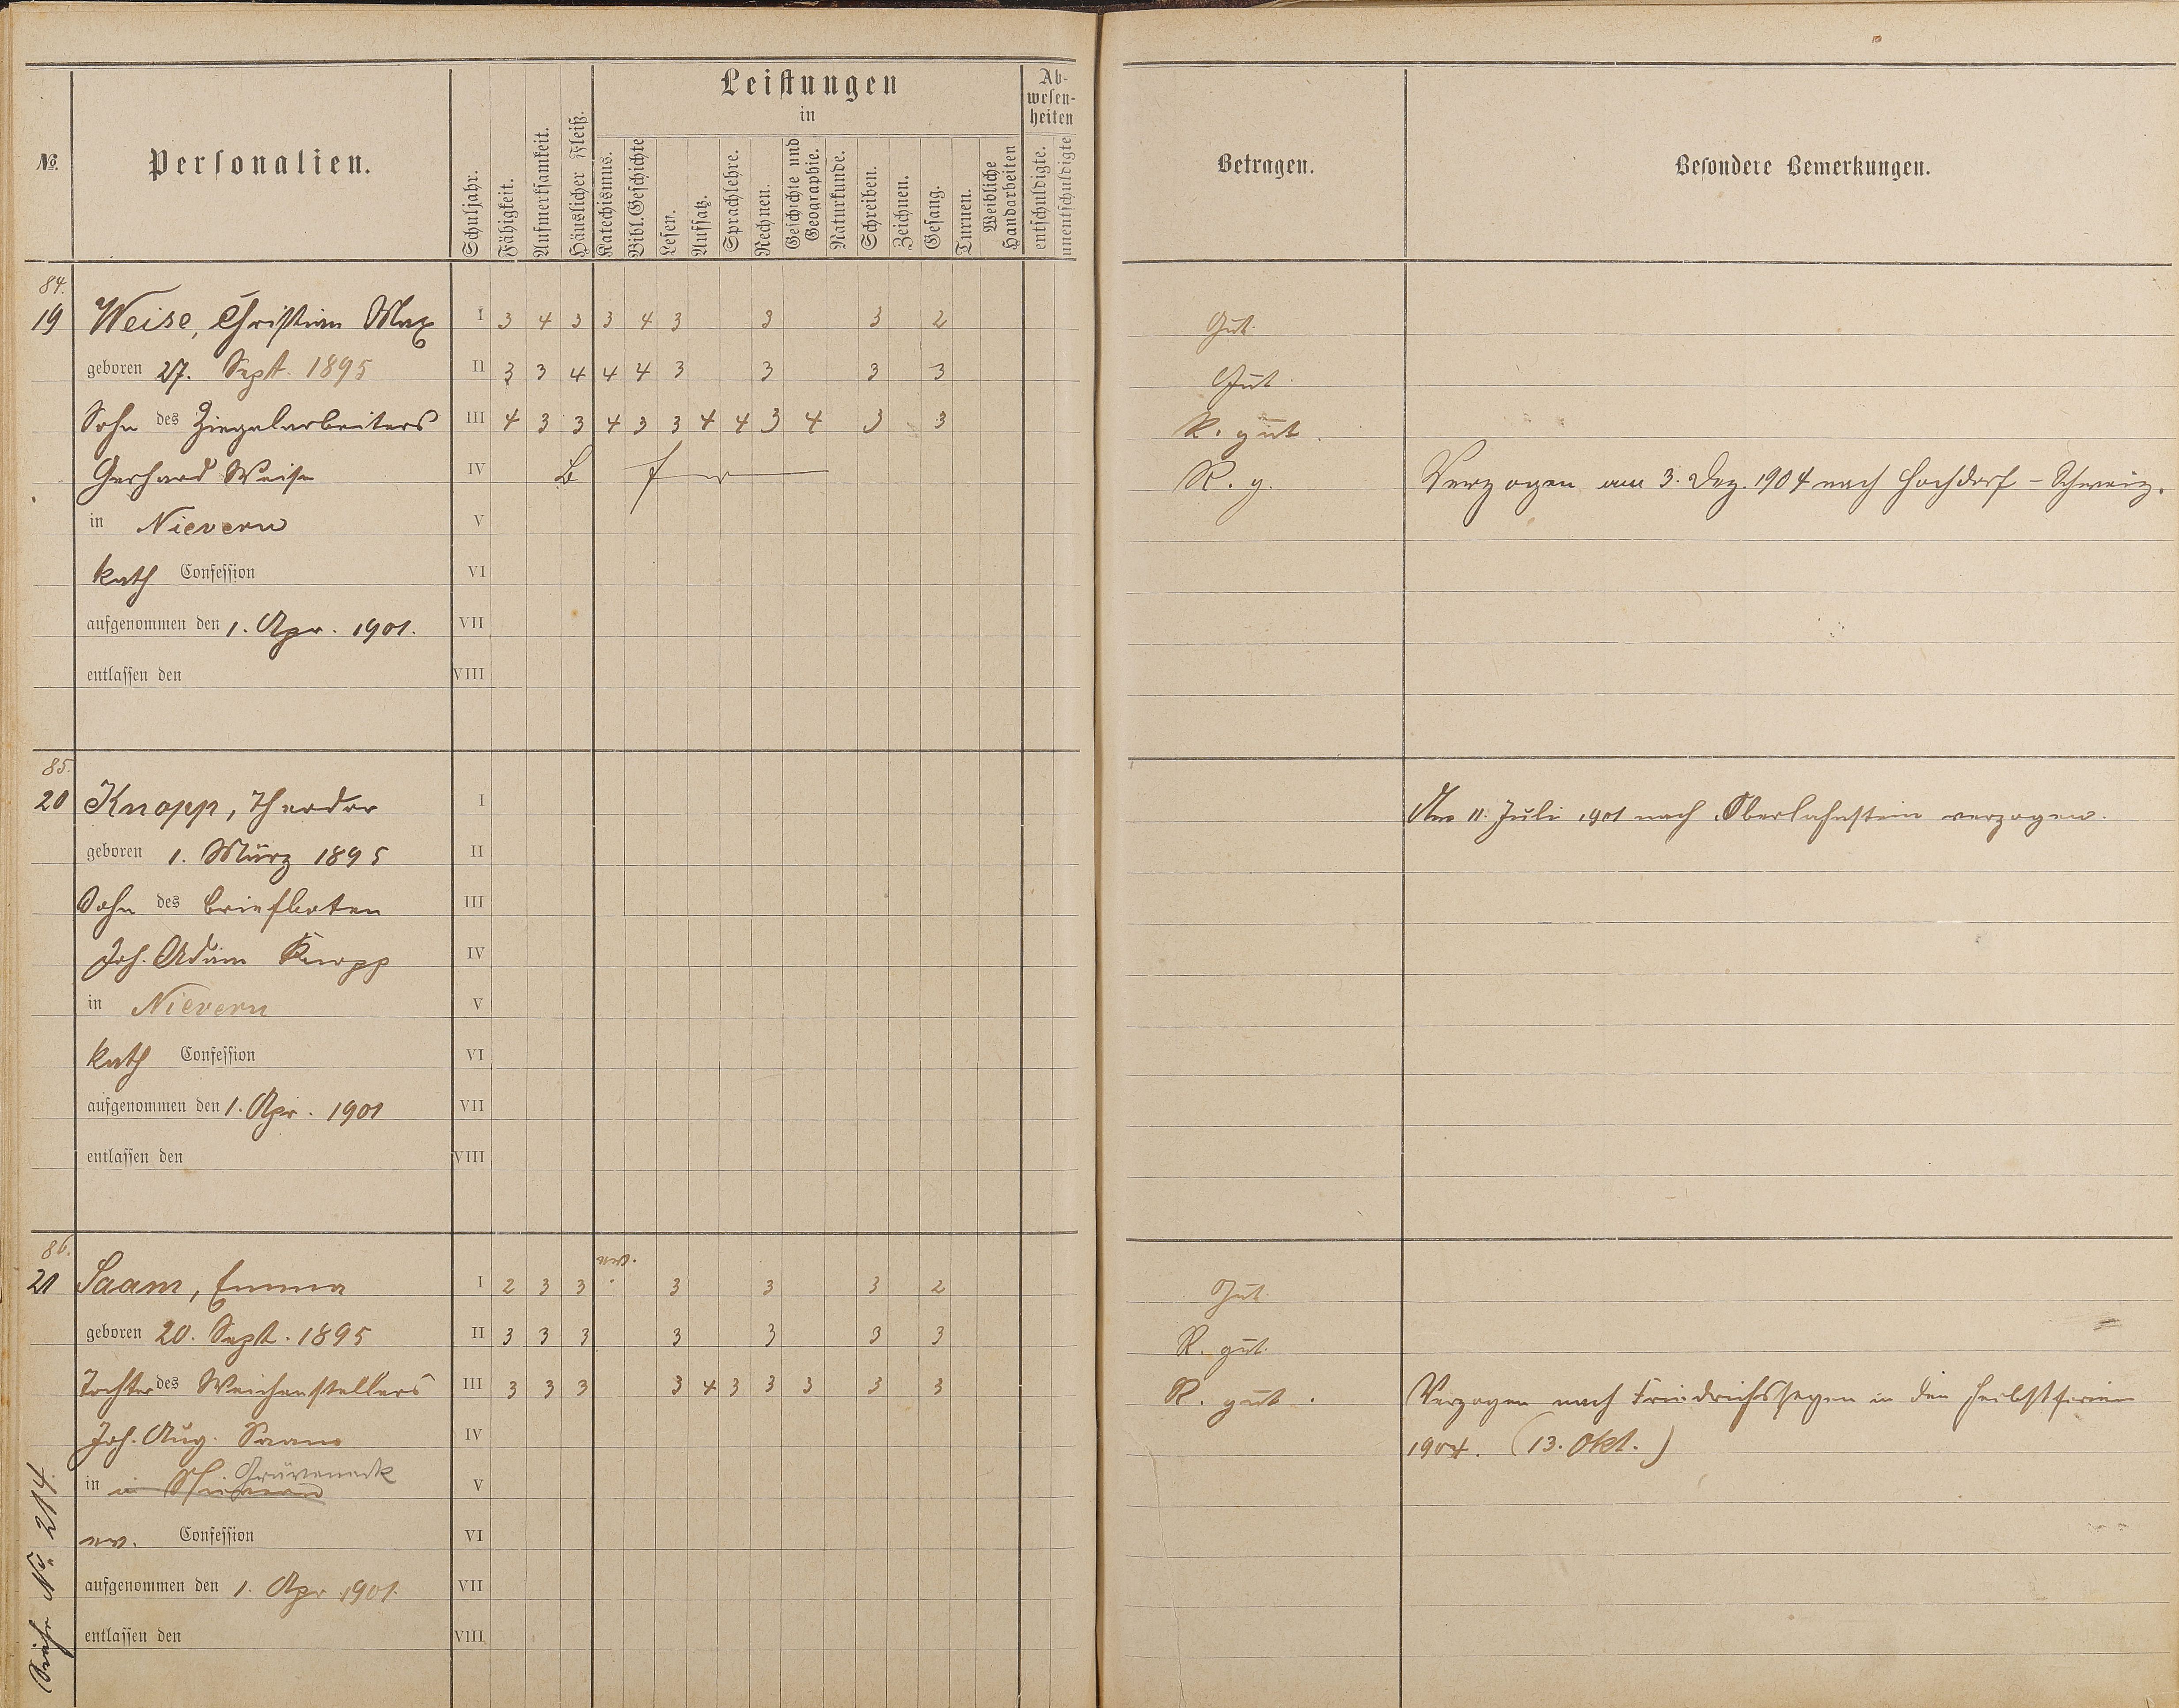 Leistungen
in
Ab-
wesen-
heiten
№.
Personalien.
Schuljahr.
Fähigkeit.
Aufmerksamkeit.
Häuslicher Fleiß.
Katechismus.
Bibl. Geschichte
Lesen.
Aufsatz.
Sprachlehre.
Rechnen.
Geschichte und
Geographie.
Naturkunde.
Schreiben.
Zeichnen.
Gesang.
Turnen.
Weibliche
Handarbeiten
entschuldigte.
unentschuldigte
Betragen.
Besondere Bemerkungen.
84.
19 Weise, Christian Max I 3 4 3 3 4 3 3 3 2 Gut.
geboren 27. Sept. 1895 II 3 3 4 4 4 3 3 3 3 Gut.
Sohn des Ziegelarbeiters III 4 3 3 4 3 3 4 4 3 4 3 3 R. gut.
Gerhard Weise IV R. g. Verzogen am 3. Dez. 1904 nach Hochdorf - Schweiz.
in Nievern V
kath Confession VI
aufgenommen den 1. Apr. 1901. VII
entlassen den VIII
85.
20 Knopp, Theodor I Am 11. Juli 1901 nach Oberlahnstein verzogen.
geboren 1. März 1895 II
Sohn des Briefboten III
Joh. Adam Knopp IV
in Nievern V
kath Confession VI
aufgenommen den 1. Apr. 1901 VII
entlassen den VIII
86.
ev.
21 Saam, Emma I 2 3 3 3 3 3 2 Gut.
geboren 20. Sept. 1895 II 3 3 3 3 3 3 3 R. gut.
Tochter des Weichenstellers III 3 3 3 3 4 3 3 3 3 3 R. gut. Verzogen nach Friedrichssegen in den Herbstferien
Joh. Aug. Saam IV 1904. (13. Okt.)
Gräveneck
in in Nievern V
ev. Confession VI
aufgenommen den 1. Apr. 1901. VII
entlassen den VIII
Siehe No 214